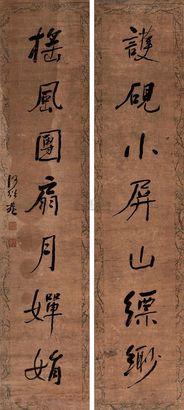 護硯小屏山縹緲
搖風團扇月嬋娟
何紹基